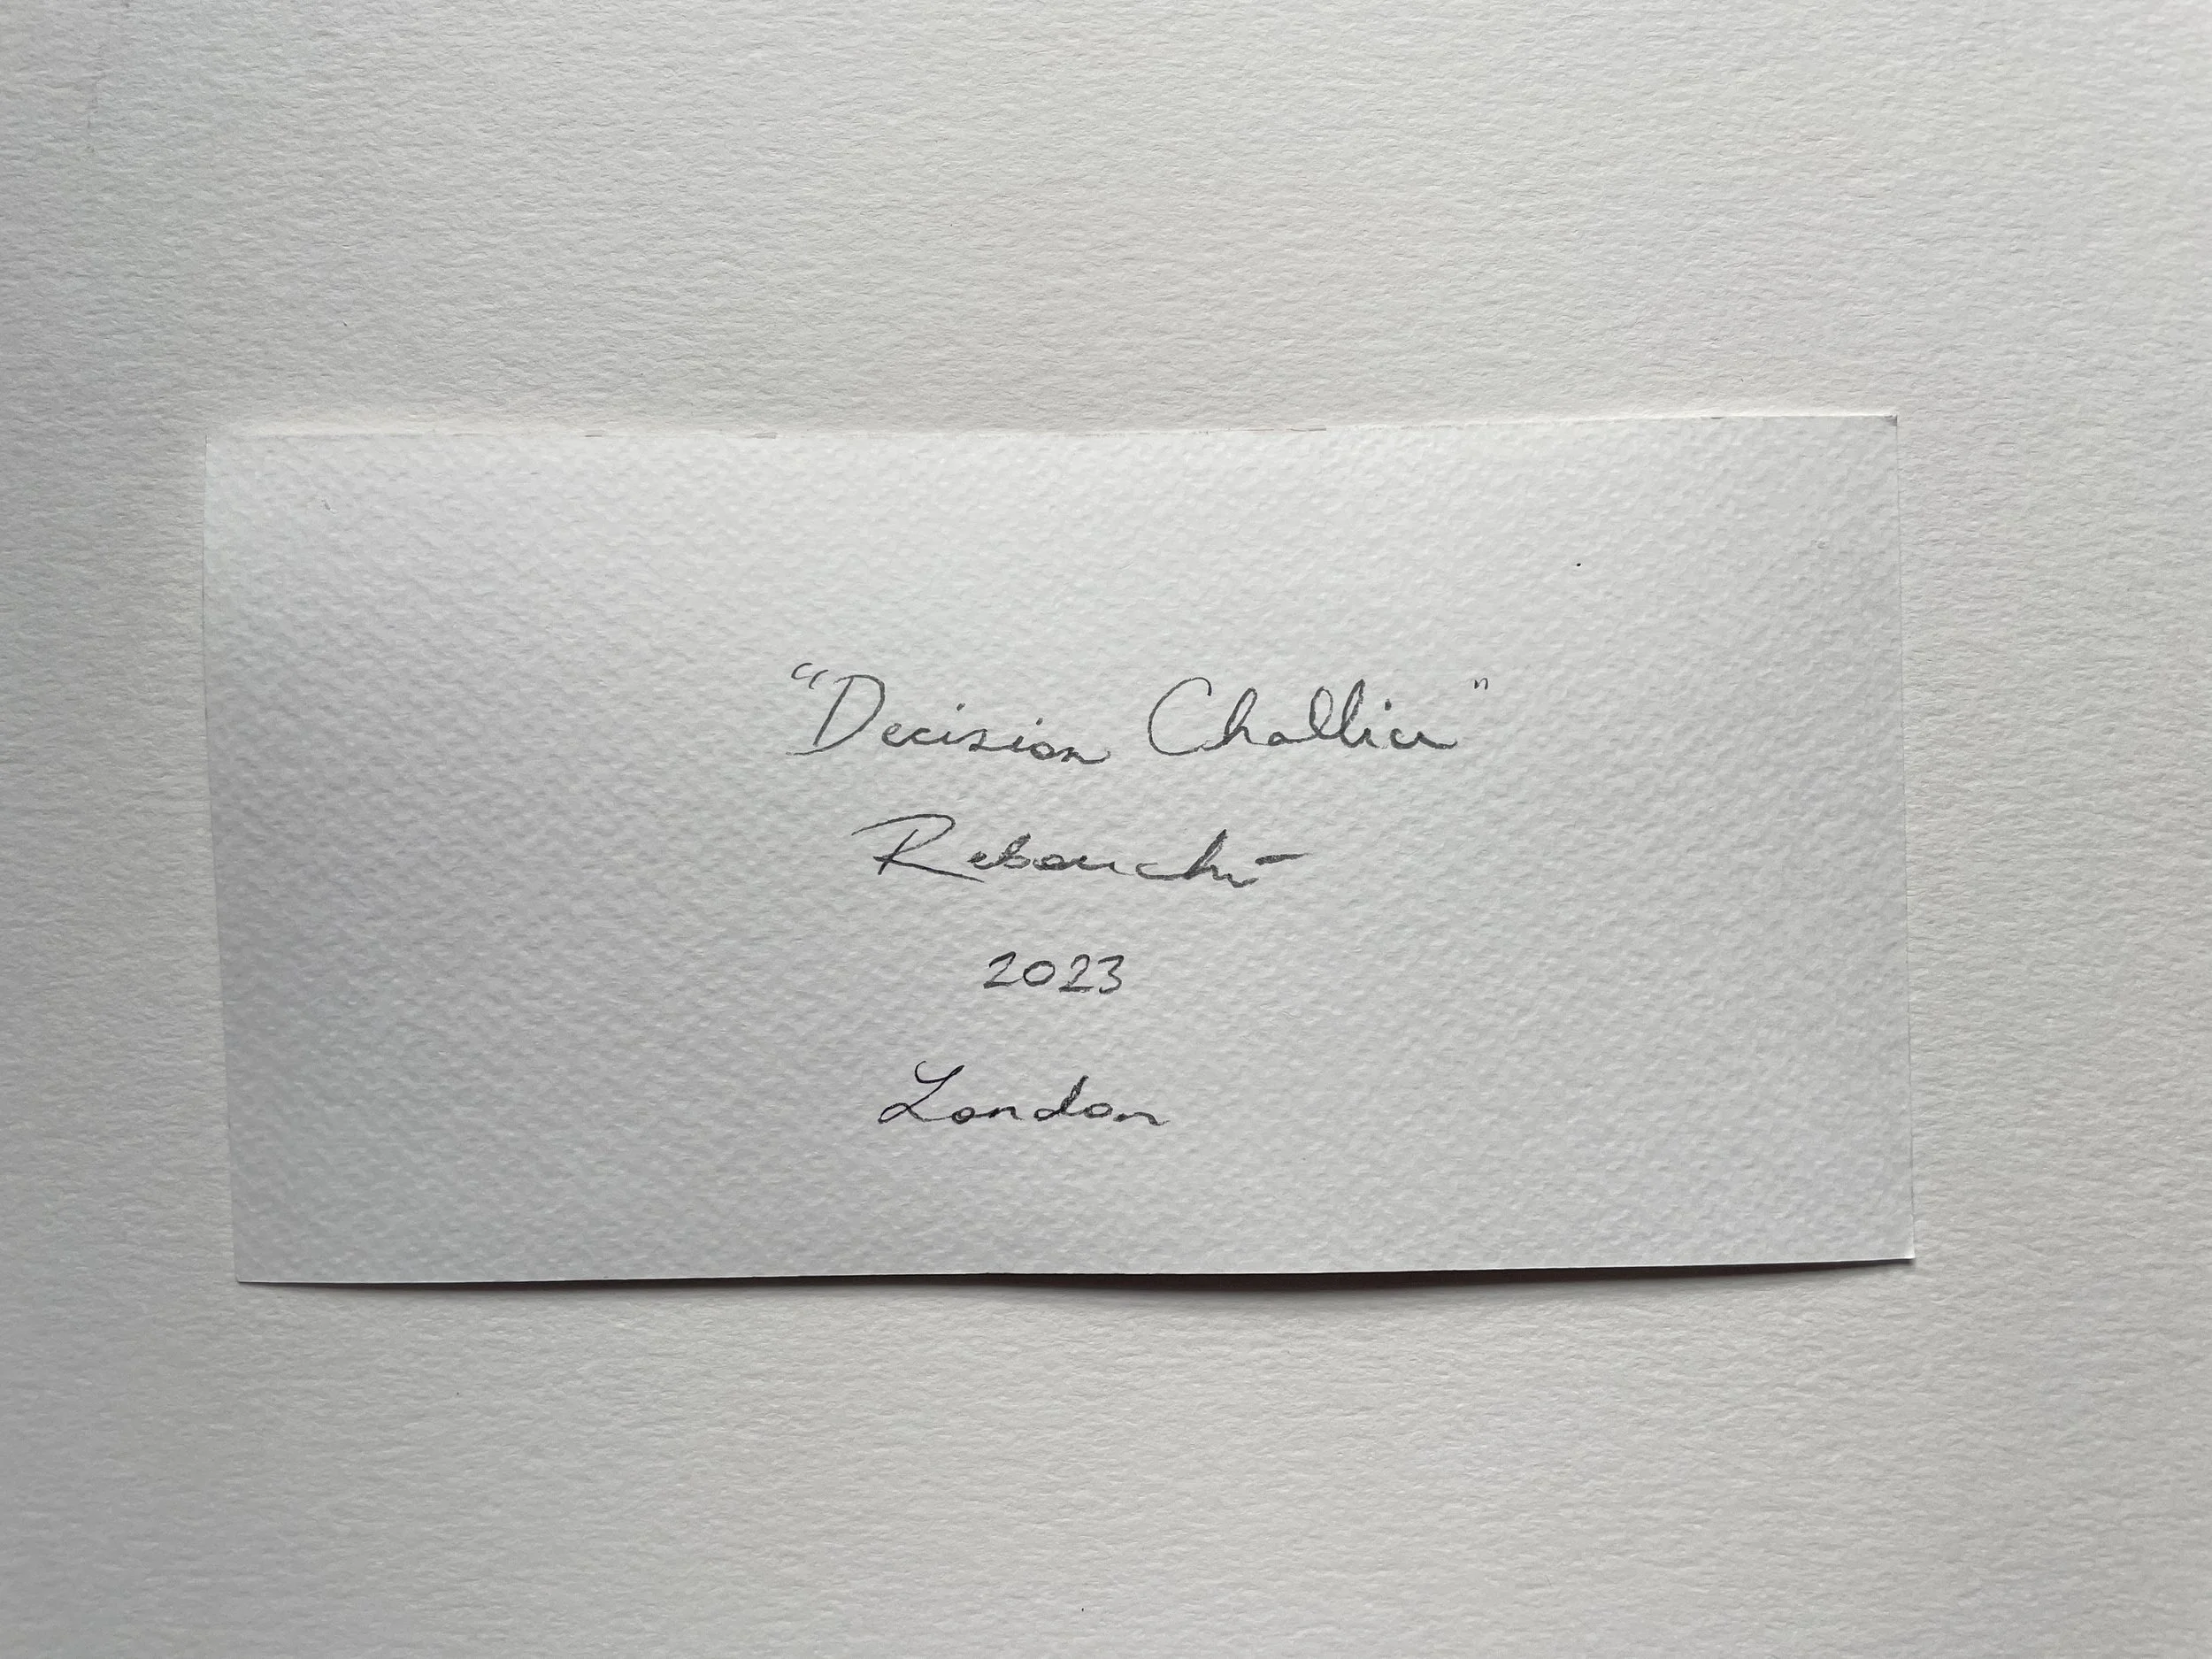 "Decision Challice"
Rebouché
2023
London